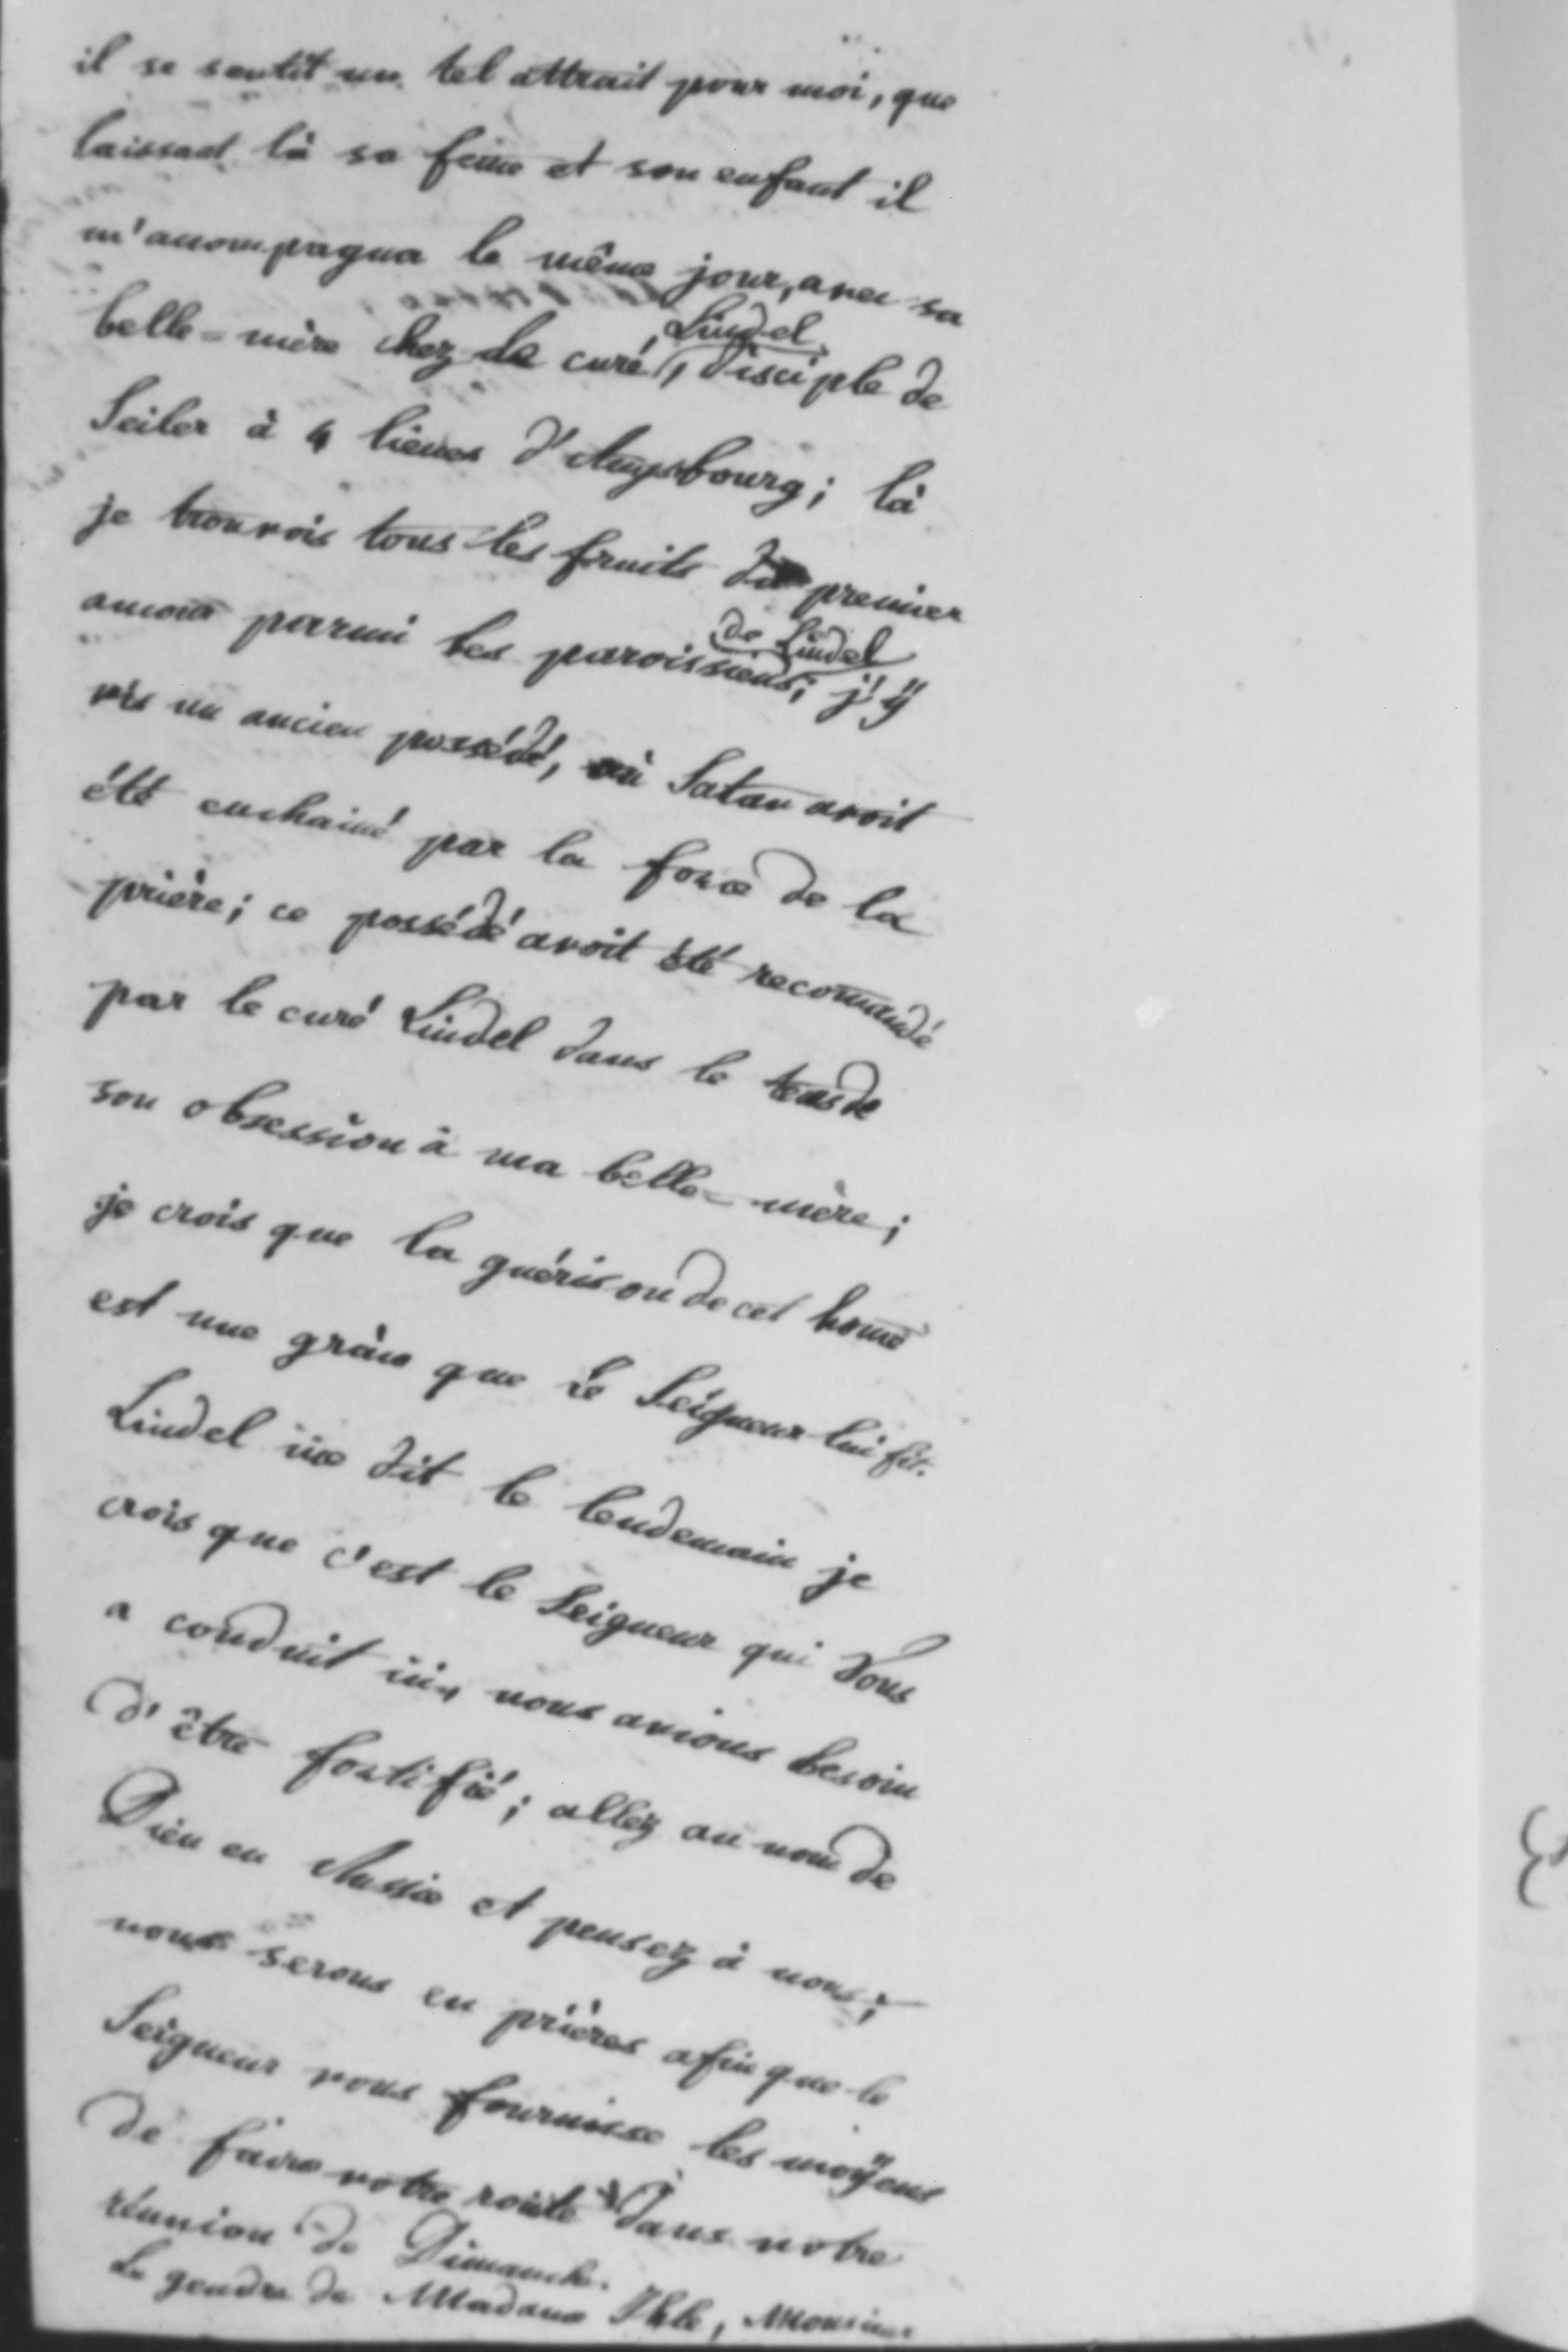 il se sentit un tel attrait pour moi, que
laissant là sa feme et son enfant il
m'acompagna le même jour, avec sa
belle-mère chez le curé, Lindel, disciple de
Seiler à 4 lieues d'Augsbourg; là
je trouvois tous les fruits du premier
amour parmi les paroissiens de Lindel; j'ÿ
vis un ancien possédé, où Satan avoit
été enchainé par la force de la
prière; ce possédé avoit été recomandé
par le curé Lindel dans le tems de
son obsession à ma belle-mère;
je crois que la guérison de cet home
est une grâce que le Seigneur lui fit.
Lindel me dit le lendemain je
crois que c'est le Seigneur qui vous
a conduit ici, nous avions besoin
d'être fortifié; allez au nom de
Dieu en Russie et pensez à nous;
nous serons en prières afin que le
Seigneur vous fournisse les moÿens
de faire votre route dans notre
réunion de Dimanche.
Le gendre de Madame Ihle, Monsieur